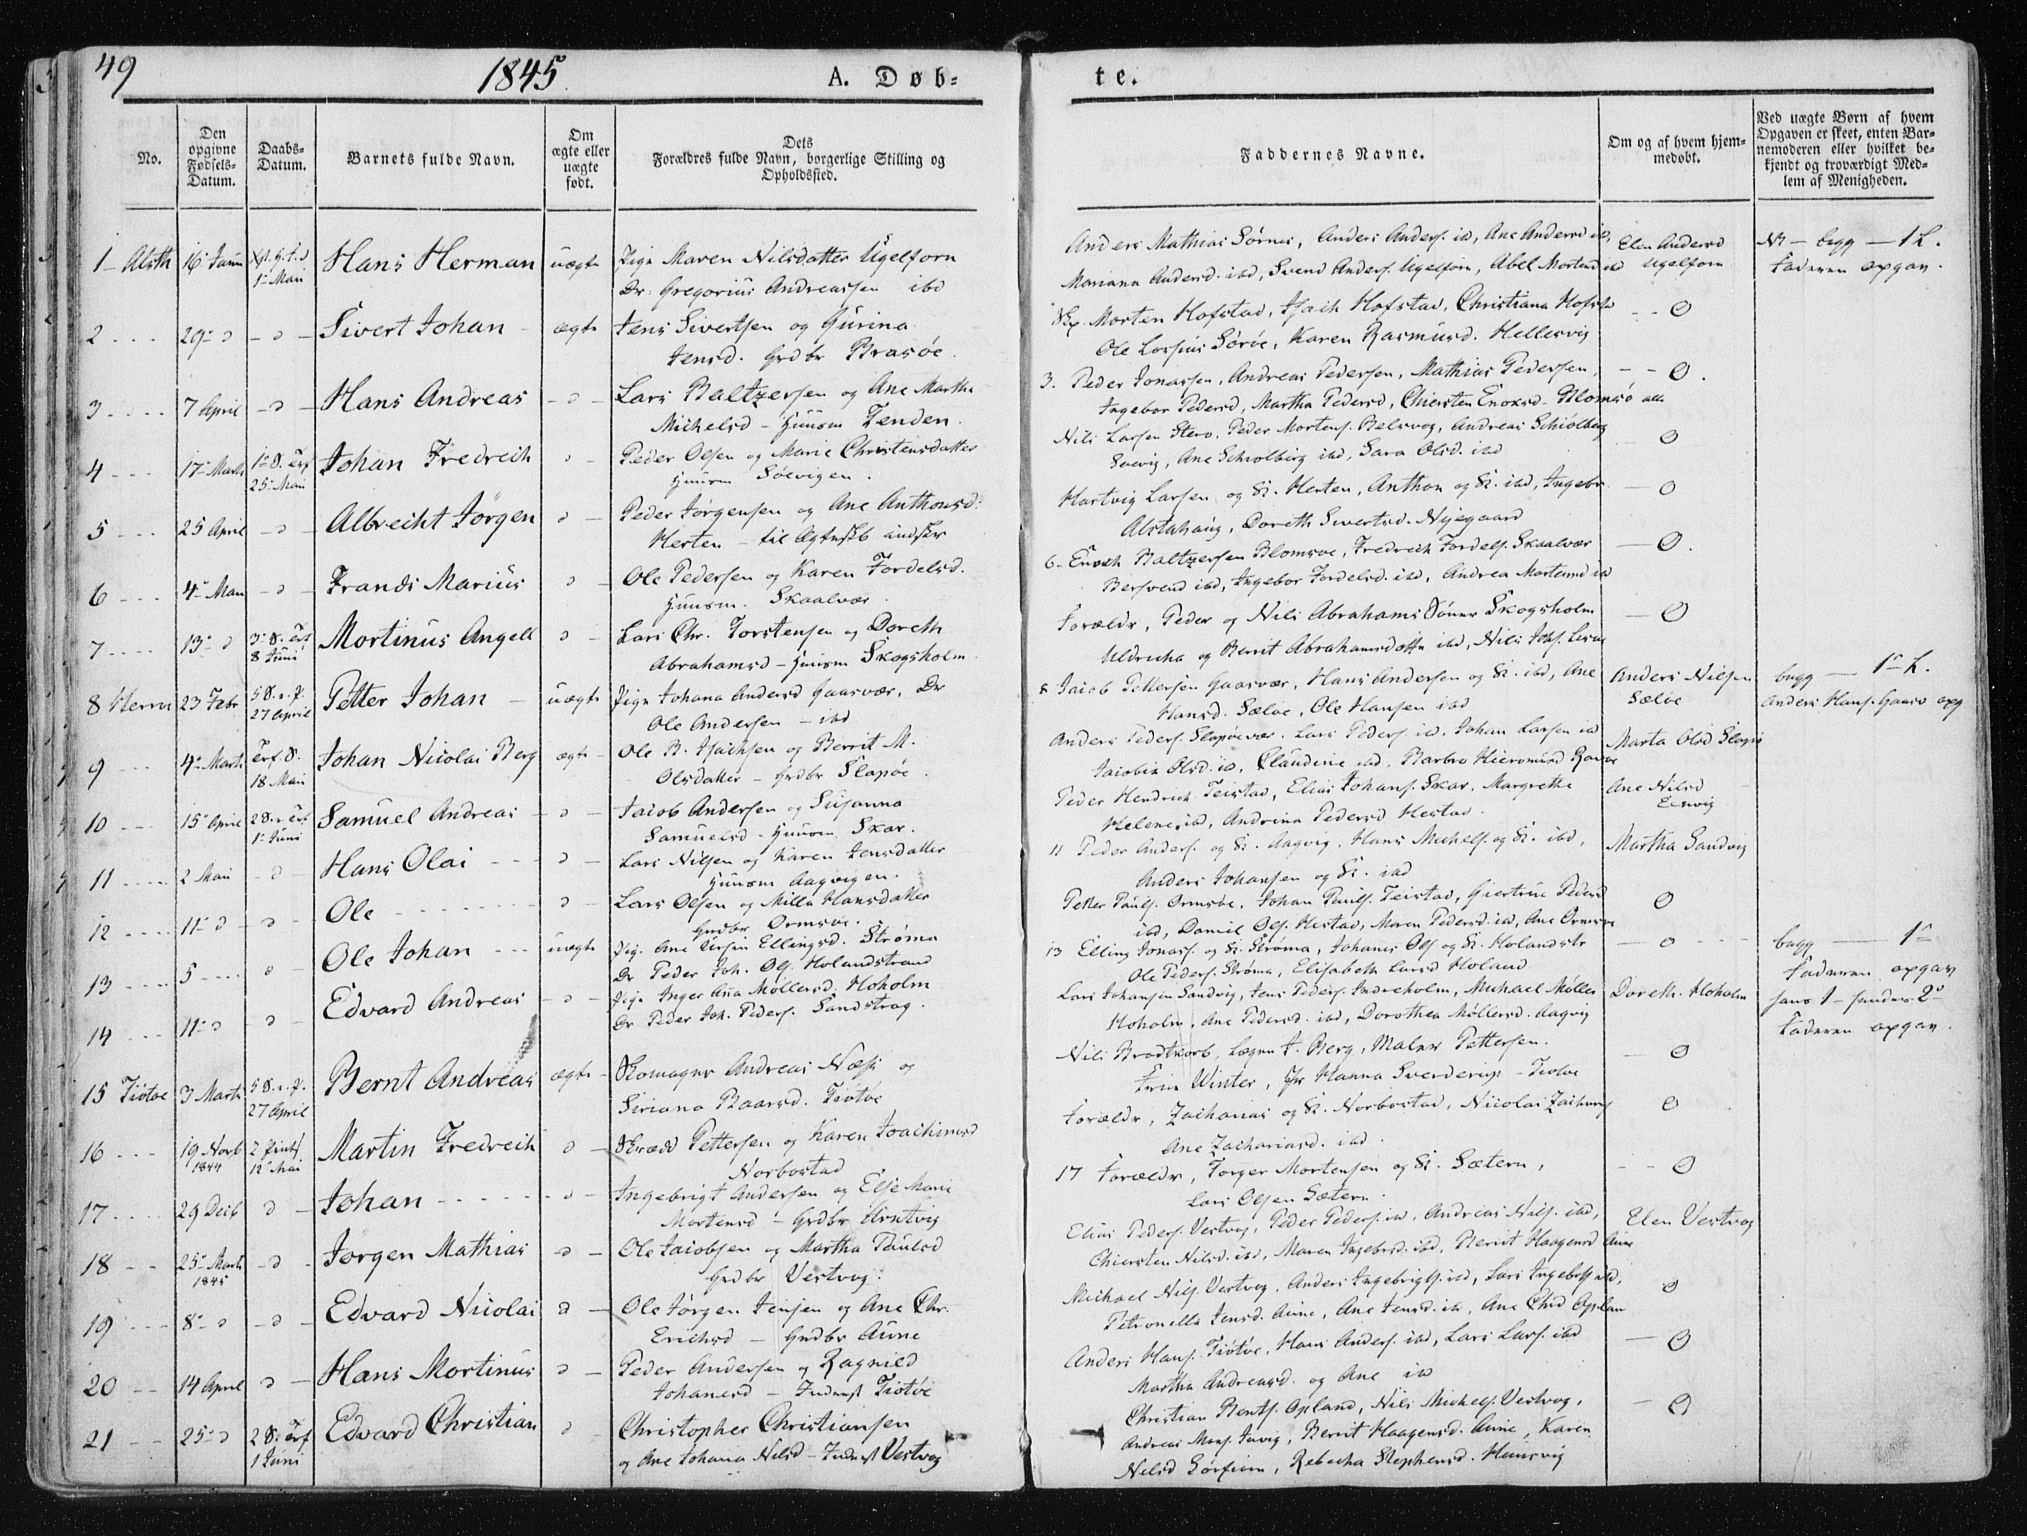 49
1845.
A. Døb-
te.
No.
Den opgivne Fødsels-Datum.
Daabs-Datum.
Barnets fulde Navn.
Om ægte eller uægte født.
Dets Forældres fulde Navn, borgerlige Stilling og Opholdssted.
Faddernes Navne.
Om og af hvem hjem-medøbt.
Ved uægte Børn af hvem Opgaven er skeet, enten Bar-nemoderen eller hvilket be-kjendt og troværdigt Med-lem af Menigheden.
1 Alsth 16
1 Mai
Hans Herman uægte Pige Maren Nilsdatter Ugelforn
Dr: Gregorius Andreassen ibd
Anders Mathias Sørnes, Anders Anders. ibd, Ane Andersd ibd,
Mariana Andersd. ibd, Svend Anders. Ugelforn, Abel Mortensd ibd
Elen Andersd
Ugelforn
begg — 1 L.
Faderen opgav.
2 29 d d Sivert Johan ægte Jens Sivertsen og Gurina
Jensd. Grdbr Brasøe.
Morten Hofstad, Isach Hofstad, Christiana Hofst
Ole Sørøe, Karen Rasmusd. Hellesvig
0
3 7 April d Hans Andreas d Lars Baltzersen og Ane Martha
Michelsd - Huusm Tenden.
3. Peder Jonassen, Andreas Pedersen, Mathias Pedersen,
Ingebor Pedersd, Martha Pedersd, Chiersten Enoksd. Blomsø alle
0.
4 17 Marts 1 S. Trf
25 Mai
Johan Fredrich d Peder Olsen og Marie Christensdatter
Huusm Søevigen.
Nils Larsen Stero, Peder Mortens. Belsvog, Andreas Schiølberg
Soevig, Ane Schiolberg ibd, Sara Olsd. ibd
0
5 25 April d Albrecht Jørgen d Peder Jørgensen og Ane Anthonsd:
Hesten - til Ægteskb indsker
Hartvig Larsen og K. Hesten, Anthon og K. ibd, Ingebr.
Alstahaug, Doreth Sivertsd. Nyegaard
0
6 4 Mai d Frands Marius d Ole Pedersen og Karen Fordelsd.
Huusm. Skaalvær.
6. Enoch Baltzersen Blomsøe, Fredrich Fordels. Skaalvær
Bersvend ibd, Ingebor Fordelsd. ibd, Andrea Mortensd ibd
0.
7 13 d 3 S. Trf
8 Juni
Mortinus Angell d Lars Chr. Torstensen og Doreth
Abrahamsd - Huusm Skogsholm
Forældr, Peder og Nils Abrahams Sønner Skogsholm
Uldricha og Berrit Abrahamsdottr ibd, Nils Johs.
0
8 Herrø 23 Febr 5 S. e. P.
27 April
Petter Johan uægte Pige Johana Andersd Gaasvær, Dr
Ole Andersen - ibd
8 Jacob Pettersen Gaasvær, Hans Andersen og K. ibd, Ane
Hansd. Sæløe, Ole Hansen ibd
Anders Nilsen
Sæløe
begg — 1 L.
Anders Hans. Gaasv opg
9 4 Marts Trf S.
18 Mai
Johan Nicolai Berg ægte Ole B. Isachsen og Berrit M.
Olsdatter - Grdbr Slapøe.
Anders Peders. Slapøevær. Lars Peders. ibd, Johan Larsen ibd
Jacobin Olsd. ibd, Claudine ibd, Barbro Hieronimusd
Marta Olsd Slapø
10 15 April 2 S. e Trf
1 Juni
Samuel Andreas d Jacob Andersen og Susanna
Samuelsd - Huusm. Skar.
Peder Hendrich Teistad, Elias Johans. Skar, Margrethe
Helene ibd, Andrina Pedersd Hestad.
Ane Nilsd
11 2 Mai d Hans Olai d Lars Nilsen og Karen Jensdatter
Huusm Aagvigen.
11 Peder Anders. og K. Aagvig, Hans Michels. og K. ibd,
Anders Johansen og K. ibd
Martha Sandvig
12 11 d d Ole d Lars Olsen og Milla Hansdatter
Grdbr Ormsøe.
Petter Pauls. Ormsøe, Johan Pauls. Teistad, Giertrue Pedersd
ibd, Daniel Ols. Hestad, Maren Pedersd. ibd, Ane Ormsøe
0
13 5 d Ole Johan uægte Pig. Ane Ellingsd. Strøma
Dr Peder Joh. Ols. Holandstrand
13 Elling Jonass. og K. Strøma, Johanes Ols. og K. Holandstr
Ole Peders. Strøma, Elisabeth Larsd Holand
0
begg — 1
Faderen opgav
14 11 d d Edvard Andreas d Pige Inger Ana Møllersd. Hoholm
Dr Peder Joh. Peders. Sandstrag.
Lars Johansen Sandvig, Jens Peders. Indreholm, Michael Møller
Hoholm, Ane Pedersd. ibd, Dorothea Møllersd. Aagvig
Doreth. Hoholm
hans 1 - hendes 2
Faderen opgav.
15 Tiøtøe 3 Marts 5 S. e. P.
27 April
Bernt Andreas ægte Skomager Andreas Næss og
Siriana Baarsd. Tiøtøe
Nils Brodtkorb, Lægen J. Berg, Maler Pettersen.
Frue Winter, Jfr Hanna Sverderup - Tiøtøe
0
16 19 Novb
1844
2 Pints
12 Mai
Martin Fredrich d Skrædd Pettersen og Karen Joachimsd
Norbostad
Forældr, Zacharias og K. Norbostad, Nicolai Zachars
Ane Zachariasd. ibd.
0
17 29 Decb d Johan d Ingebrigt Andersen og Else Marie
Mortensd - Grdbr
17 Forældr, Torger Mortensen og K. Sætern,
Lars Olsen Sætern.
0
18 25 Marts
1845
d Jørgen Mathias d Ole Jacobsen og Martha Paulsd
Grdbr Vestvog.
Elias Peders. Vestvog, Peder Peders. ibd, Andreas Nils. ibd,
Chiersten Nilsd. ibd, Maren Ingebrsd. ibd, Berrit Haagensd Aune
Elen Vestvog
19 8 d d Edvard Nicolai d Ole Jørgen Jensen og Ane Chr.
Erichsd - Grdbr Aune
Michael Nils. Vestvog, Anders Ingebrigts. ibd, Lars Ingebrs ibd,
Petronella Jensd. Aune, Ane Jensd. ibd, Ane Opland
0
20 14 April d Hans Mortinus d Peder Andersen og Ragnild
Johanesd - Inderst Tiøtøe
Anders Hans. Tiøtøe, Hans Anders. ibd, Lars Lars. ibd
Martha Andreasd. og Ane ibd
0
21 25 d 2 S. Trf
1 Juni
Edvard Christian d Christopher Christiansen
og Ane Johana Nilsd - Inderst Vestvog
Christian Bents. Opland, Nils Michels. Vestvog,
Andreas Mons. Berrit Haagensd. Aune, Karen
Nilsd Rebecha Stephensd.
0